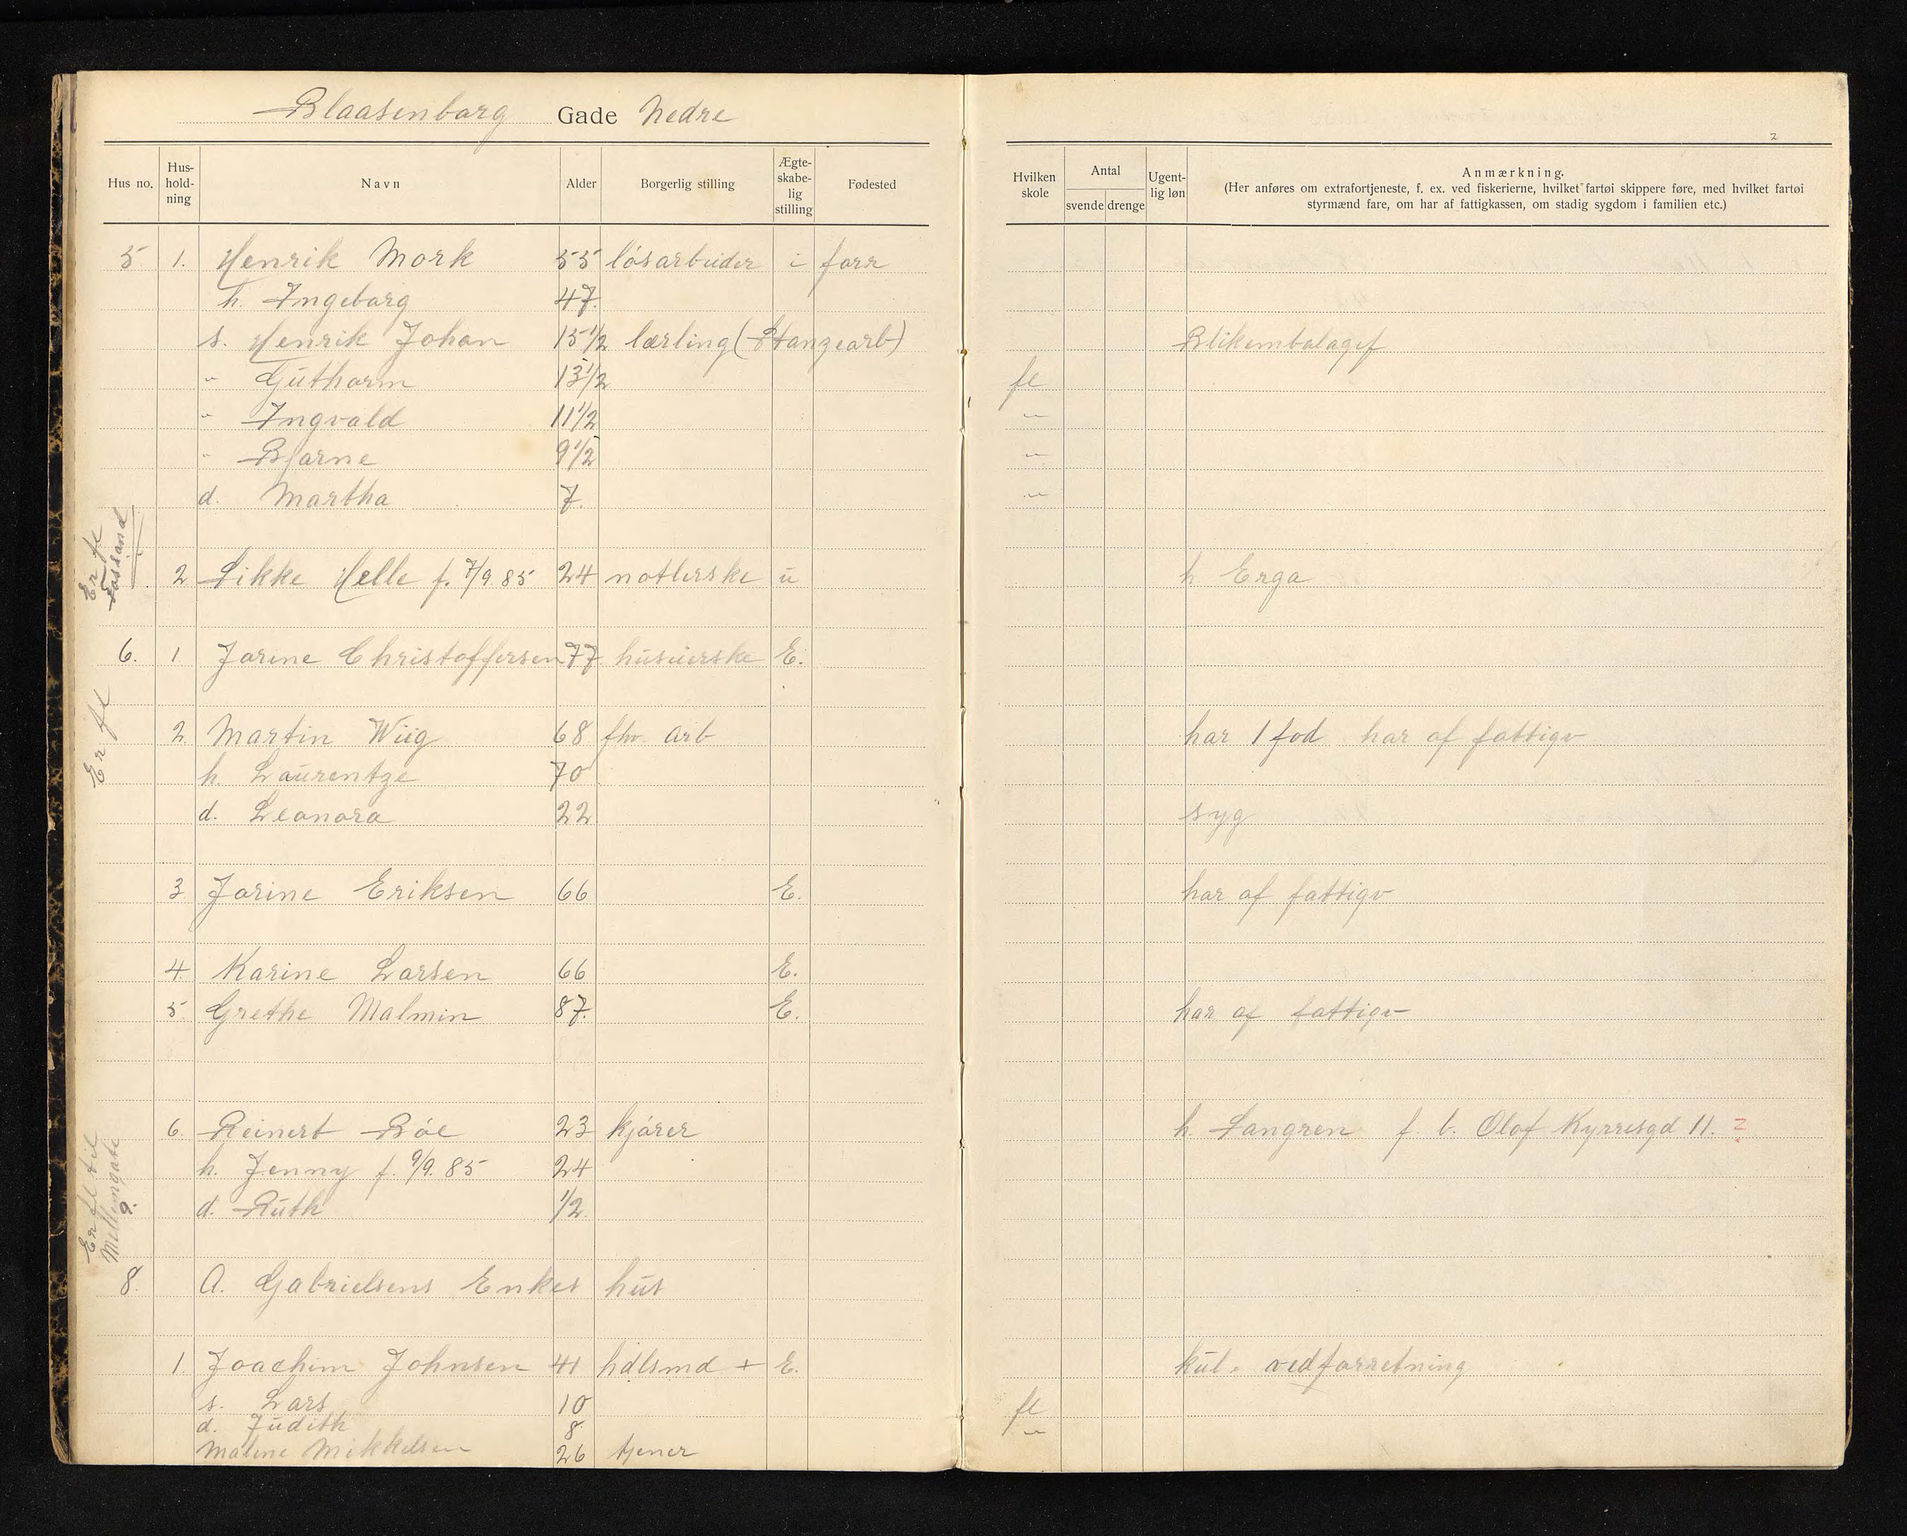 Blaasenborg Gade Nedre
2
Hus no. Hus-hold-ning Navn Alder Borgerlig stilling Ægte-skabe-lig stilling Fødested Hvilken skole Antal svende drenge Ugent-lig løn Anmærkning.
(Her anføres om extrafortjeneste, f. ex. ved fiskerierne, hvilket fartøi skippere føre, med hvilket fartøi
styrmænd fare, om har af fattigkassen, om stadig sygdom i familien etc.)
5 1. Henrik Mork 55 løsarbeider i forr
h. Ingeborg 47.
s. Henrik Johan 15 1/2 lærling (Stanzearb) Blikembalagef
" Guthorm 13 1/2 fl
" Ingvald 11 1/2 "
" Bjarne 9 1/2 "
d. Martha 7. "
Er fl
Fossand
2 Sikke Helle f. 7/9.85 24 notlerske u h Erga
6. 1 Jorine Christoffersen 77 huseierske E.
Er fl
2. Martin Wiig 68 fhv. arb har 1 fod har af fattigv
h. Laurentze 70
d. Leonora 22 syg
3 Jorine Eriksen 66 E. har af fattigv
4. Karine Larsen 66 E.
5. Grethe Malmin 87. E. har af fattigv
Er fl til
Mellemgate
9.
6. Reinert Bøe 23 kjører h. Langren f. b. Olaf Kyrresgd 11. ?
h. Jenny f. 9/9.85 24
d. Ruth 1/2
8. A. Gabrielsens Enkes hus
1. Joachim Johnsen 41 hdlsmd + E. kul- vedforretning
s. Lars 10 fl
d. Judith 8. "
Maline Mikkelsen 26 tjener